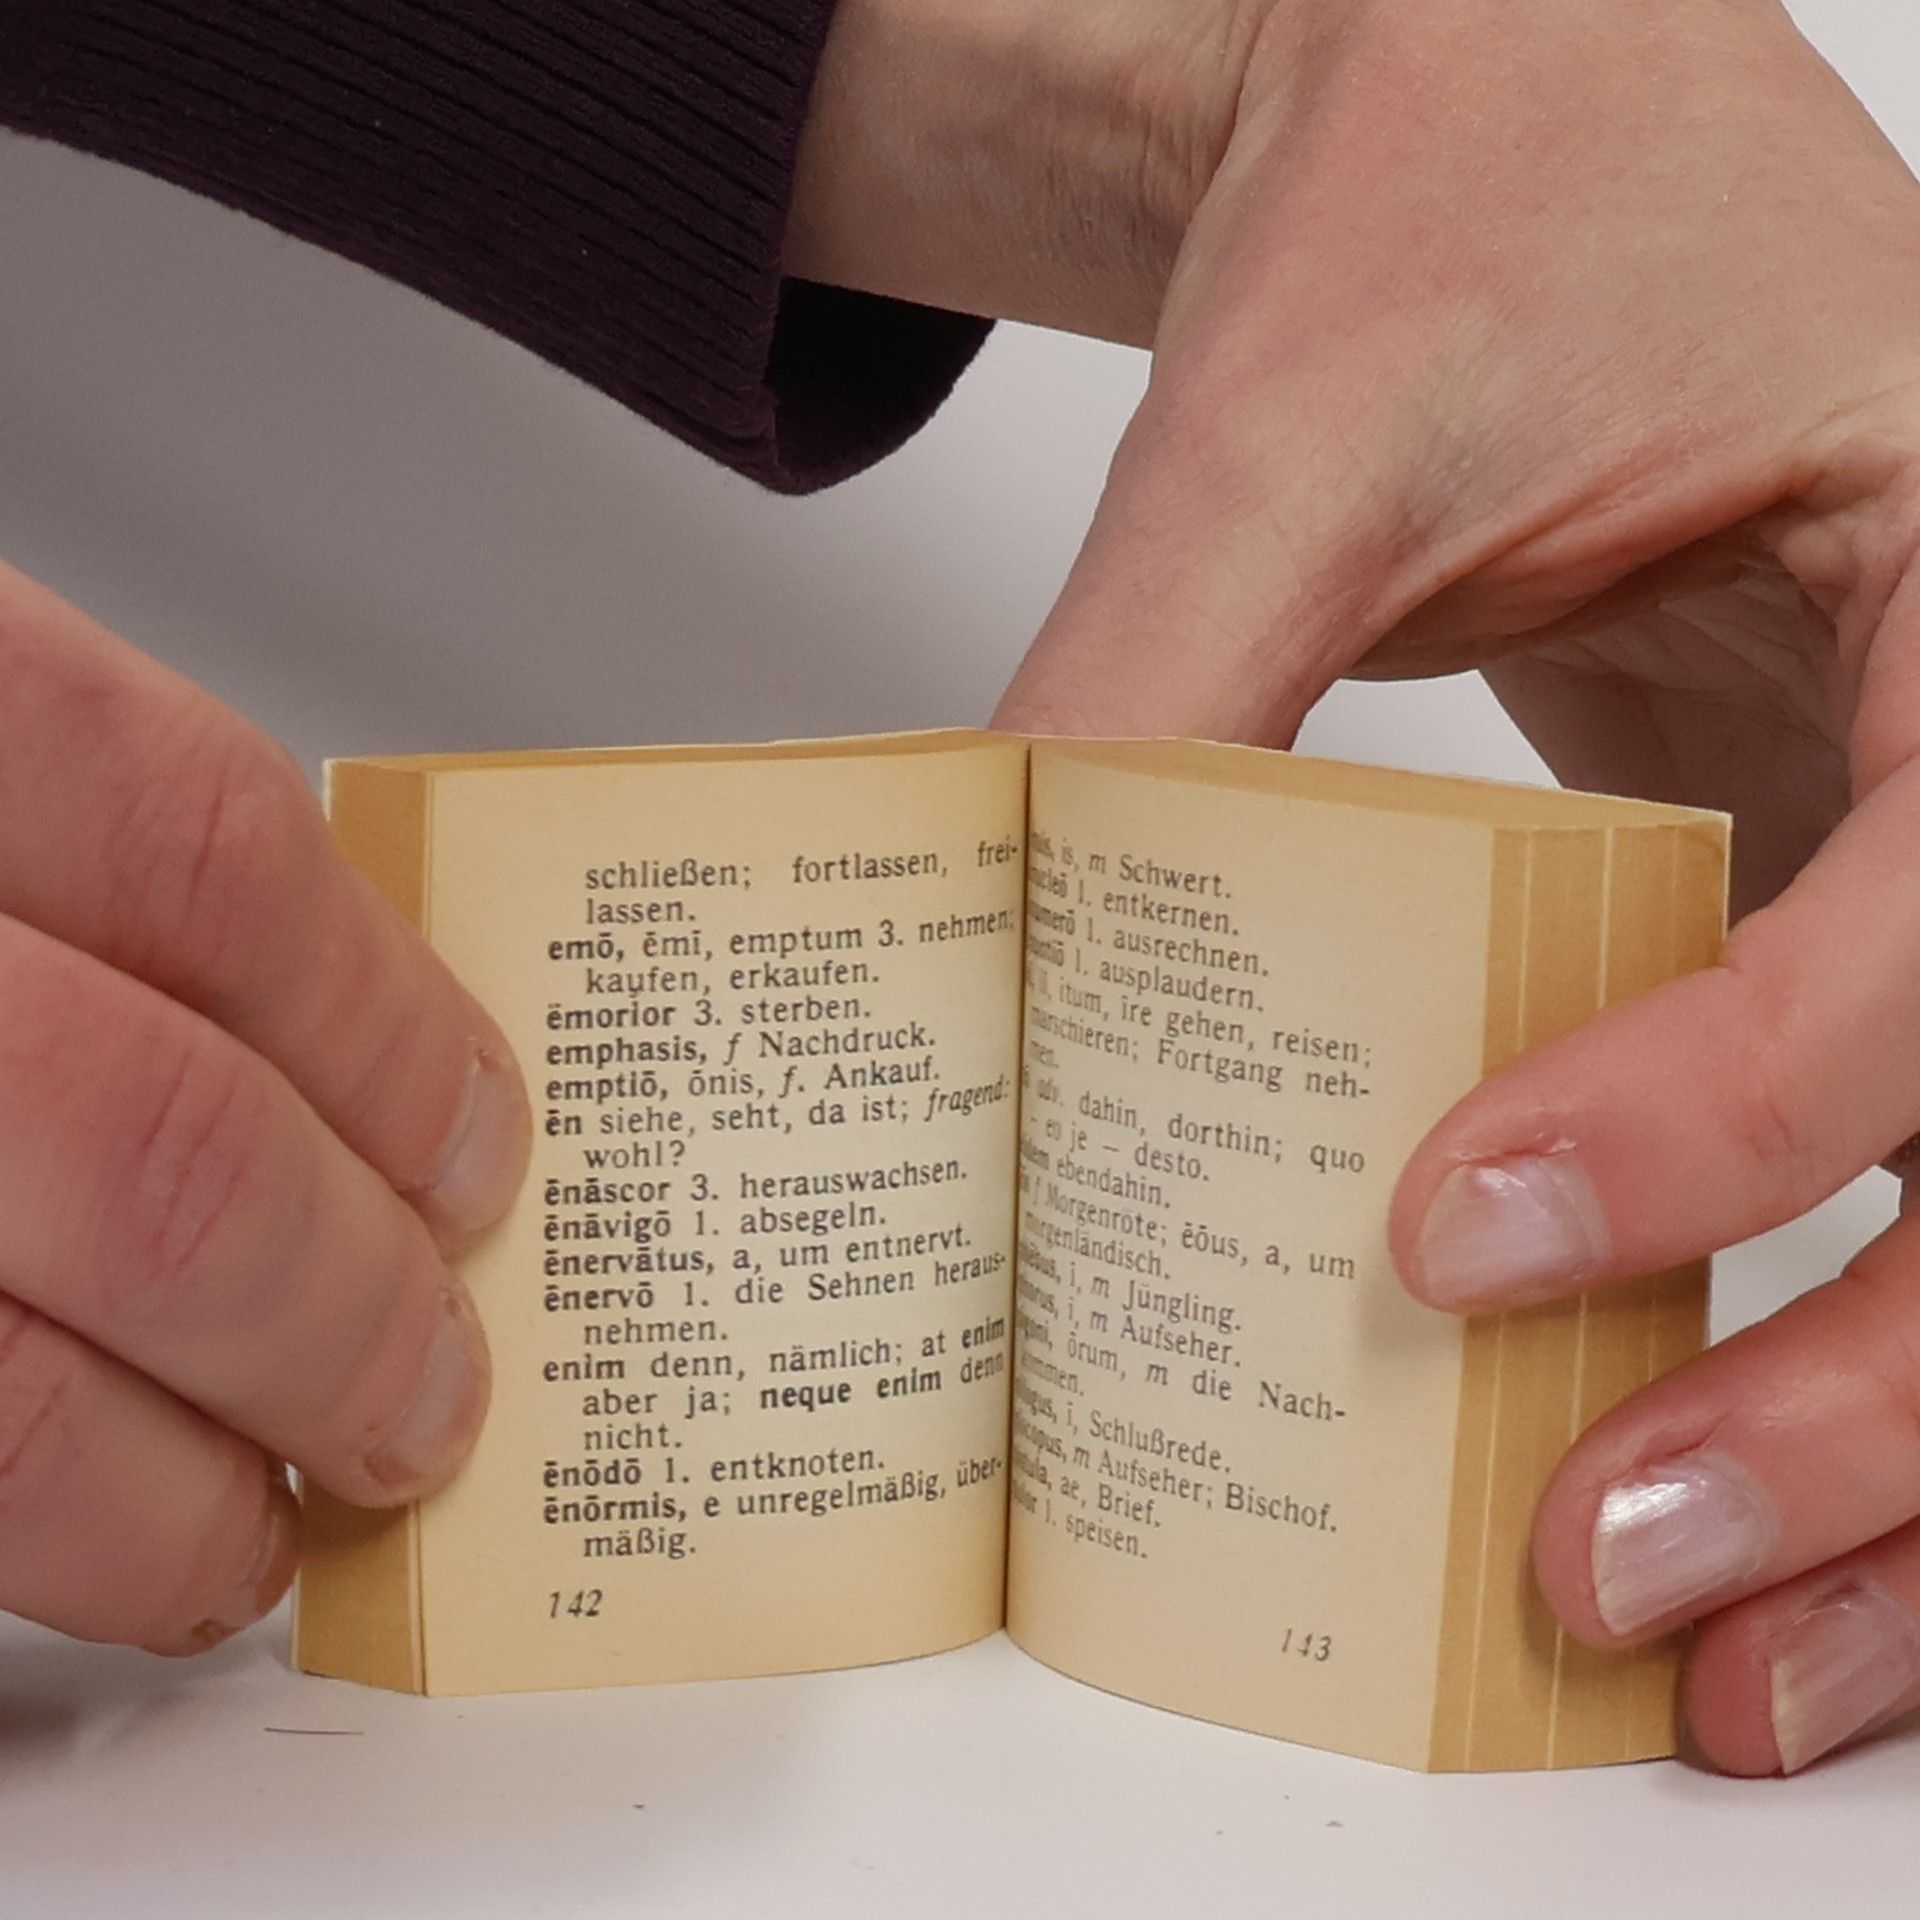 schließen; fortlassen, frei-
lassen.
emō, ēmī, emptum 3. nehmen;
kaufen, erkaufen.
ēmorior 3. sterben.
emphasis, f Nachdruck.
emptiō, ōnis, f. Ankauf.
ēn siehe, seht, da ist; fragend:
wohl?
ēnāscor 3. herauswachsen.
ēnāvigō 1. absegeln.
ēnervātus, a, um entnervt.
ēnervō 1. die Sehnen heraus-
nehmen.
enim denn, nämlich; at enim
aber ja; neque enim denn
nicht.
ēnōdō 1. entknoten.
ēnōrmis, e unregelmäßig, über-
mäßig.
142
is, m Schwert.
1. entkernen.
1. ausrechnen.
1. ausplaudern.
itum, īre gehen, reisen;
marschieren; Fortgang neh-
men.
adv. dahin, dorthin; quo
– eo je – desto.
ebendahin.
f Morgenröte; ēōus, a, um
morgenländisch.
ī, m Jüngling.
ī, m Aufseher.
ōrum, m die Nach-
kommen.
ī, Schlußrede.
m Aufseher; Bischof.
ae, Brief.
1. speisen.
143